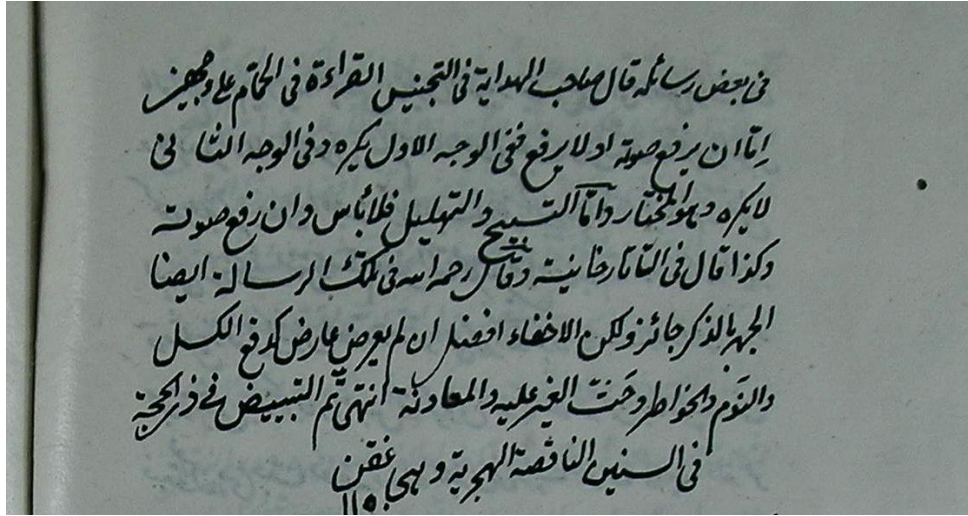 فى بعض رسائله قال صاحب الهداية فى التجنيس القراءة فى الحمام على وجهين
اِمّا ان يرفع صوته او لا يرفع ففى الوجه الاول يكره وفى الوجه الثا نى
لا يكره وهو المختار وامّا التسبيح والتهليل فلا بأس وان رفع صوته
وكذا قال فى التاتارخانية وقال رحمه الله فى تلك الرسالة ايضا
الجهر بالذكر جائز ولكن الاخفاء افضل ان لم يعرض عارض كدفع الكسل
والنوم والخواطر وحَثّ الغير عليه والمعاونة انتهى تم التبييض فى ذى الحجة
فى السنين الناقصة الهجرية وهى غقن
١١٥٠